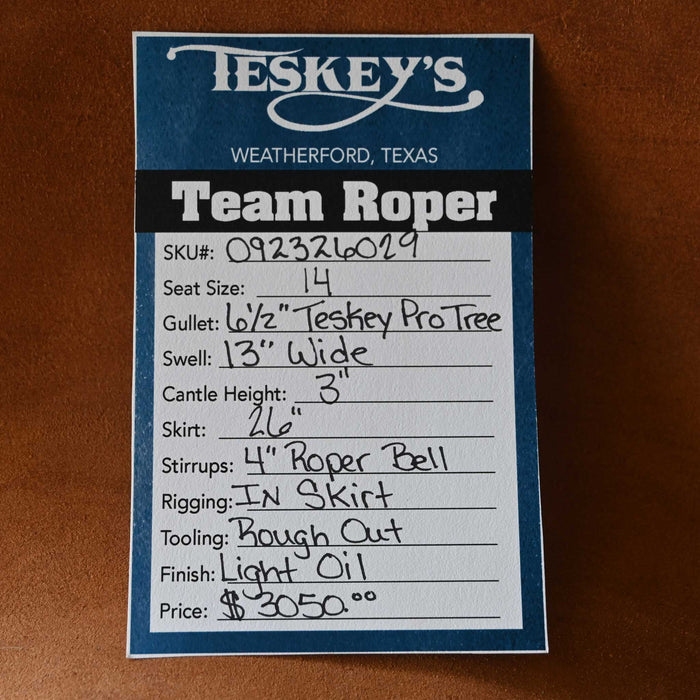 TESKEY'S
WEATHERFORD, TEXAS
Team Roper
SKU#: 092326029
Seat Size: 14
Gullet: 6 1/2" Teskey Pro Tree
Swell: 13" Wide
Cantle Height: 3"
Skirt: 26"
Stirrups: 4" Roper Bell
Rigging: IN Skirt
Tooling: Rough Out
Finish: Light Oil
Price: $3050.00